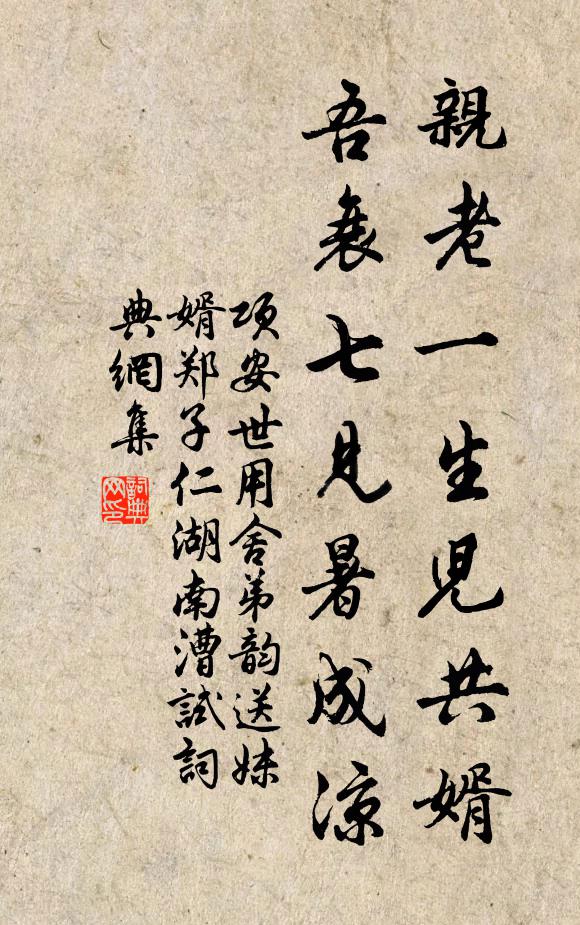 親老一生児共婿
吾衰七見暑成涼
項安世用舍弟韵送妹
婿郑子仁湖南漕試詞
典網集
詞典
网印